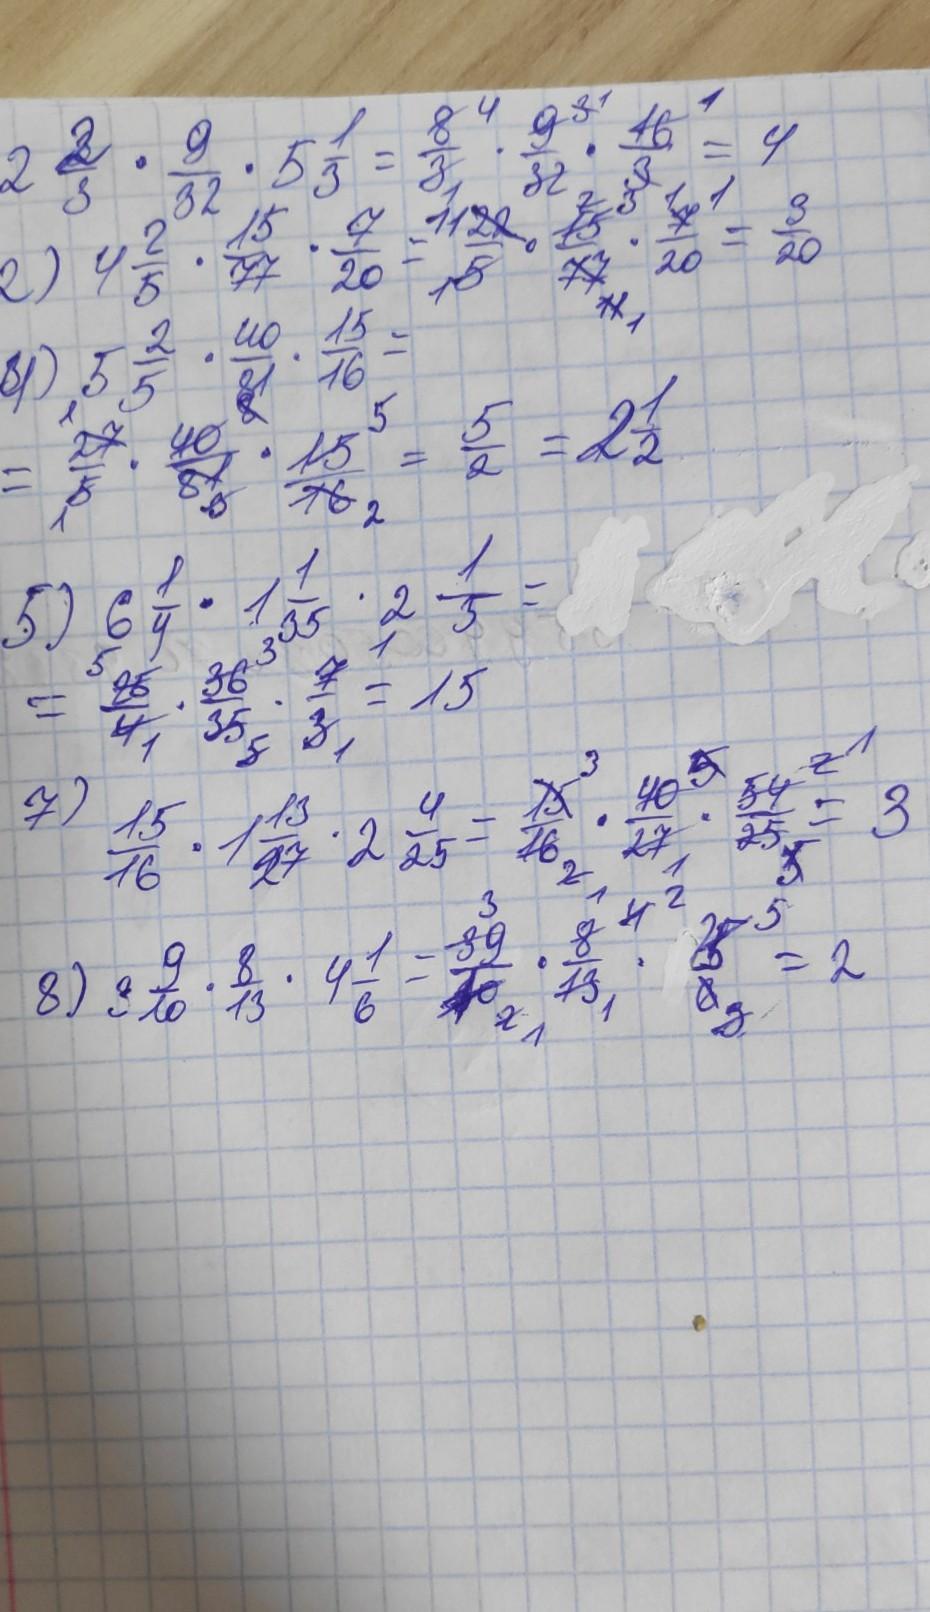 2 2/3 · 9/32 · 5 1/3 = 8/3 · 9/32 · 16/3 = 4
2) 4 2/5 · 15/77 · 7/20 = 22/5 · 15/77 · 7/20 = 9/20
4) 5 2/5 · 40/81 · 15/16 =
= 27/5 · 40/81 · 15/16 = 5/2 = 2 1/2
5) 6 1/4 · 1 1/35 · 2 1/3 =
= 25/4 · 36/35 · 7/3 = 15
7) 15/16 · 1 13/27 · 2 4/25 = 15/16 · 40/27 · 54/25 = 3
8) 3 9/10 · 8/13 · 4 1/6 = 39/10 · 8/13 · 25/6 = 2